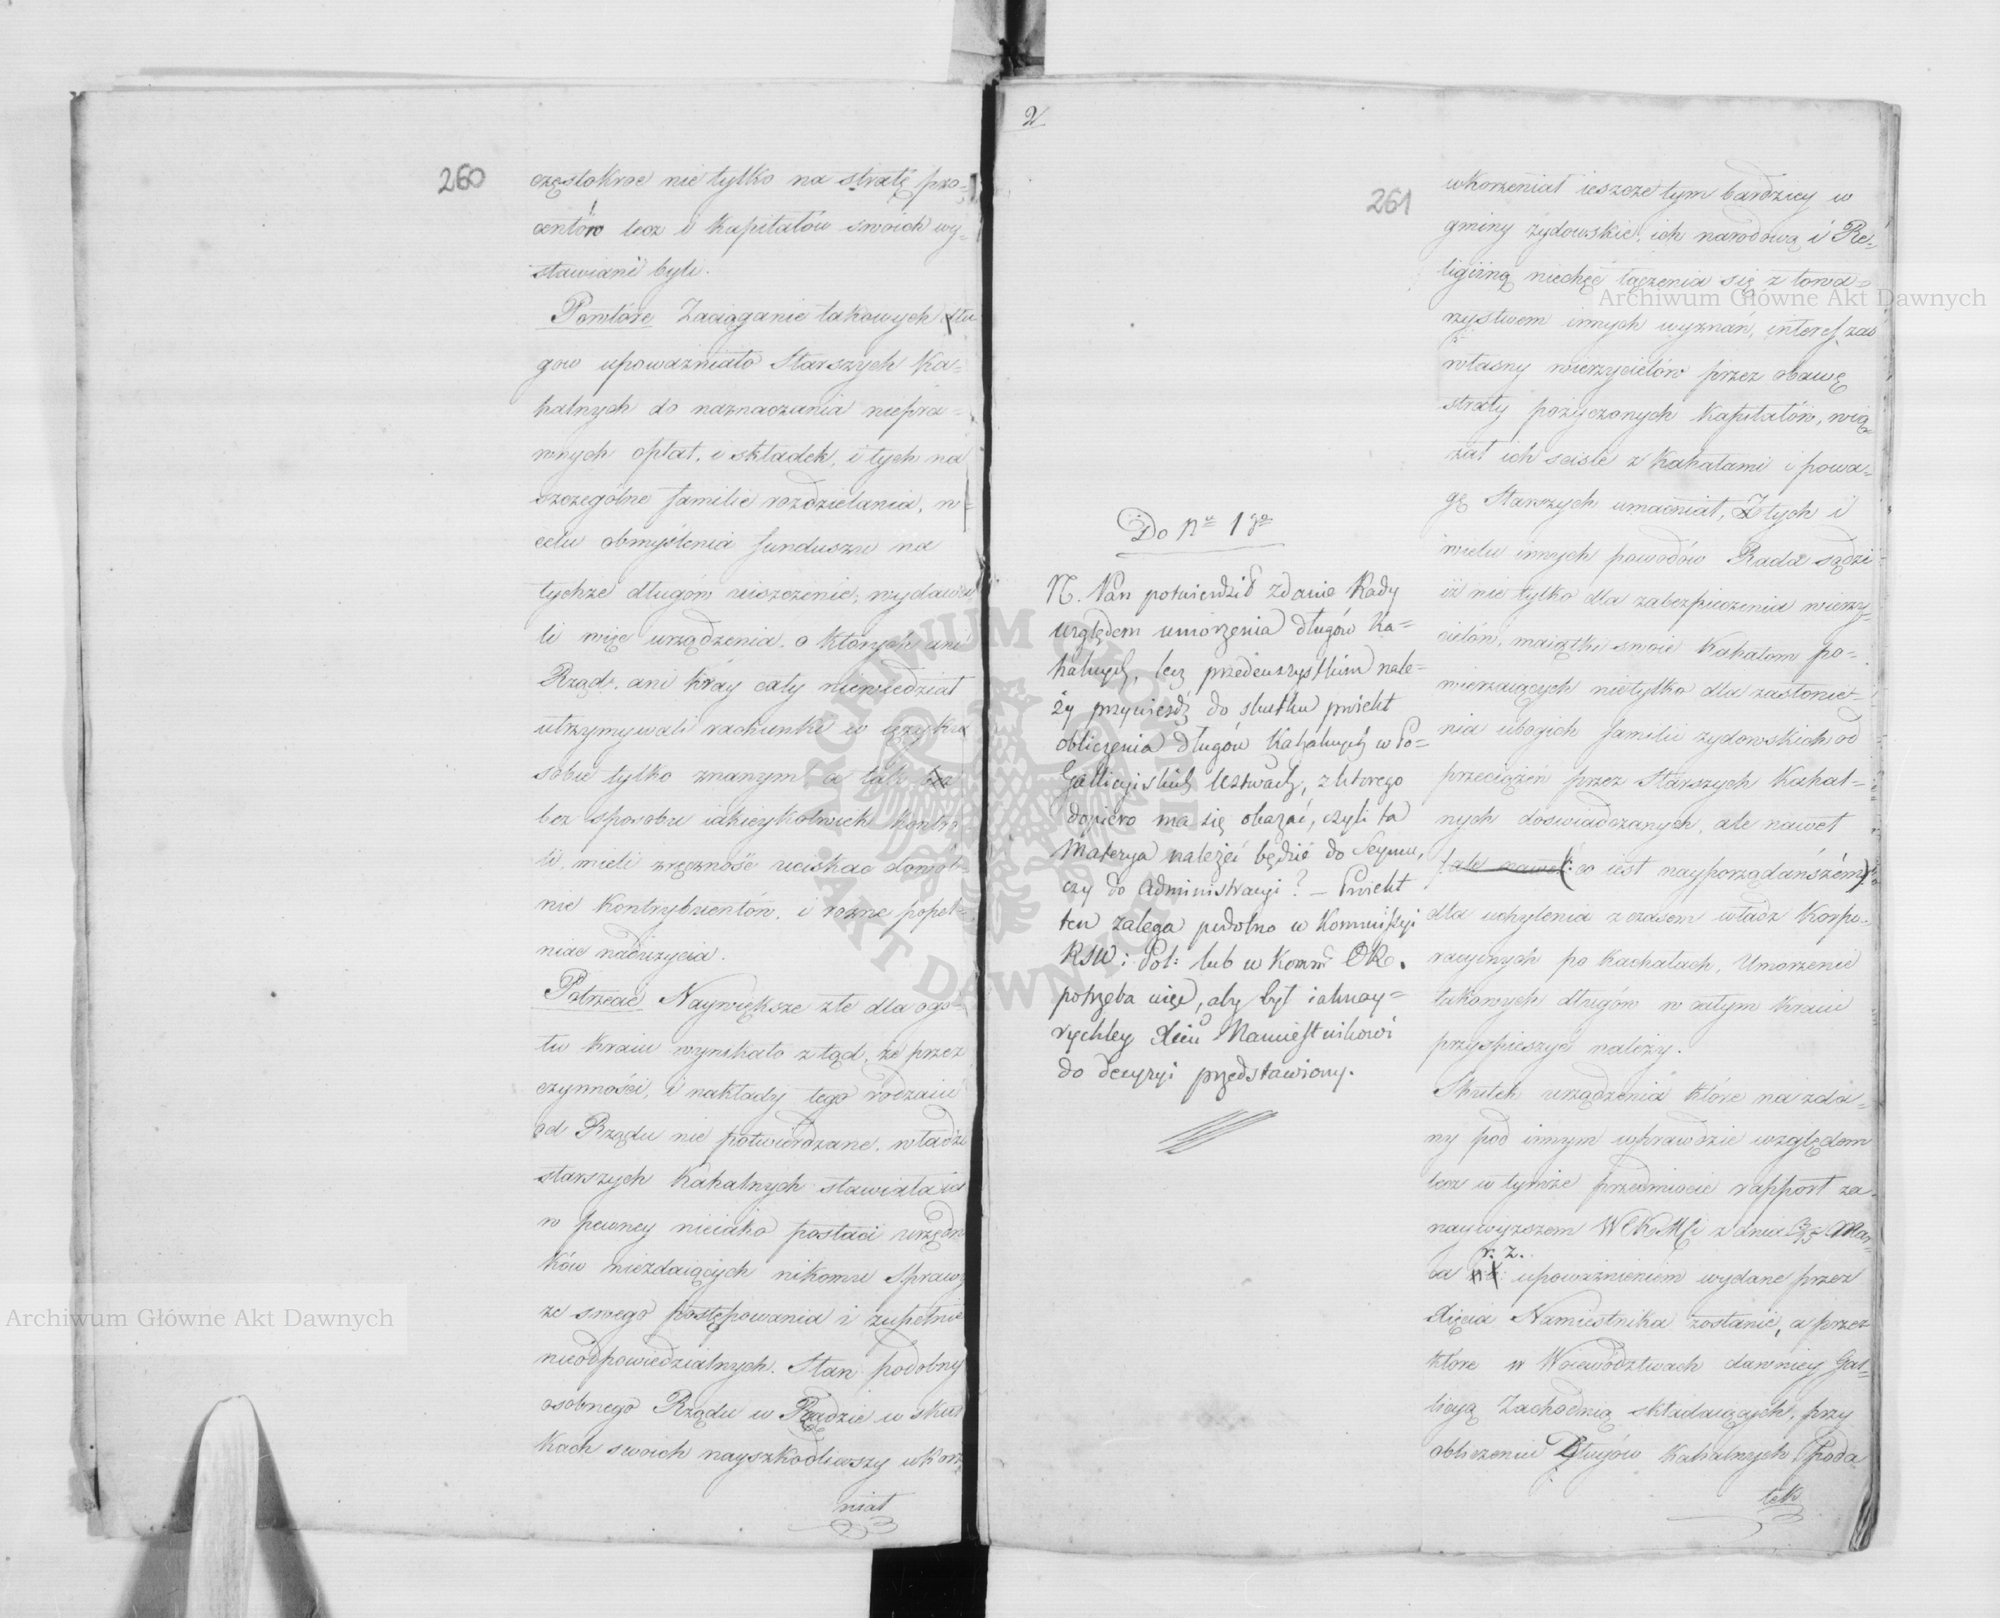 260
częstokroc nie tylko na stratę pro-
centów lecz i Kapitałów swoich wy-
stawiani byli.
Powtóre Zaciąganie takowych dłu-
gow upoważniało Starszych Ka-
halnych do naznaczania niepra-
wnych opłat, i składek, i tych na
szczególne familie rozdzielania, w
celu obmyślenia funduszu na
tychże długów uiszczenie; wydawa
li więc urządzenia, o których ani
Rząd, ani Kray cały niewiedział
utrzymywali rachunki w ięzyku
sobie tylko znanym a tak
bez sposobu iakieykolwiek kontro
li, mieli zręczność uciskac dowol-
nie Kontrybuentów, i rozne popeł-
niac nadużycia.
Potrzecie Naywiększe złe dla ogó-
łu Kraiu wynikało z tąd, że przez
czynności, i nakłady tego rodzaiu
od Rządu nie potwierdzane, władza
starszych Kahalnych stawiała ich
w pewney nieiako postaci urzędni
ków niezdaiących nikomu sprawy
ze swego postępowania i zupełnie
nieodpowiedzialnych. Stan podobny
osobnego Rządu w Rządzie w skut
kach swoich nayszkodliwszy wkorze
niał
2
261
Do Nu 1go
N. Pan potwierdził zdanie Rady
względem umorzenia długów Ka-
halnych, lecz przedewszystkim nale-
ży przywieść do skutku proiekt
obliczenia długów Kahalnych w Po-
Gallicyiskich Wztwach, z którego
dopiero ma się okazać, czyli ta
Materya należeć będzie do Seymu,
czy do Administracyi? – Proiekt
ten zalega podobno w Kommissyi
RSW: Pol: lub w Komm
potrzeba więc, aby był iaknay-
rychley Xciu Namiestnikowi
do decyzyi przedstawiony.
wkorzeniał ieszcze tym bardziey w
gminy żydowskie, ich narodową i Re-
ligiiną niechęć łączenia się z towa-
rzystwem innych wyznań, interes zaś
własny wierzycielów przez obawę
straty pożyczonych Kapitałów, wią-
zał ich scisle z Kahałami i powa-
gę Starszych umacniał, Z tych i
wielu innych powodów Rada sądzi
iż nie tylko dla zabezpieczenia wierzy-
cielów, maiątki swoie Kahałom po-
wierzaiących nietylko dla zasłonie-
nia ubogich familii żydowskich od
przeciążeń przez Starszych Kahal-
nych doswiadczanych, ale nawet
ale nawet co iest nayporządańszém
dla uchylenia z czasem władz Korpo-
racyinych po Kachałach, Umorzenie
takowych długów w całym Kraiu
przyspieszyć należy.
Skutek urządzenia które na zda-
ny pod innym wprawdzie względem
lecz w tymże przedmiocie rapport za
naywyższem WCKMci z dnia 3/15 Mar-
r. z.
ca upoważnieniem wydane przez
Xięcia Namiestnika zostanie, a przez
które w Woiewództwach dawniey Gal-
licyą Zachodnią składaiących, przy
obliczeniu Długów Kahalnych Poda
tek
Archiwum Główne Akt Dawnych
Archiwum Główne Akt Dawnych
ARCHIWUM GŁÓWNE AKT DAWNYCH